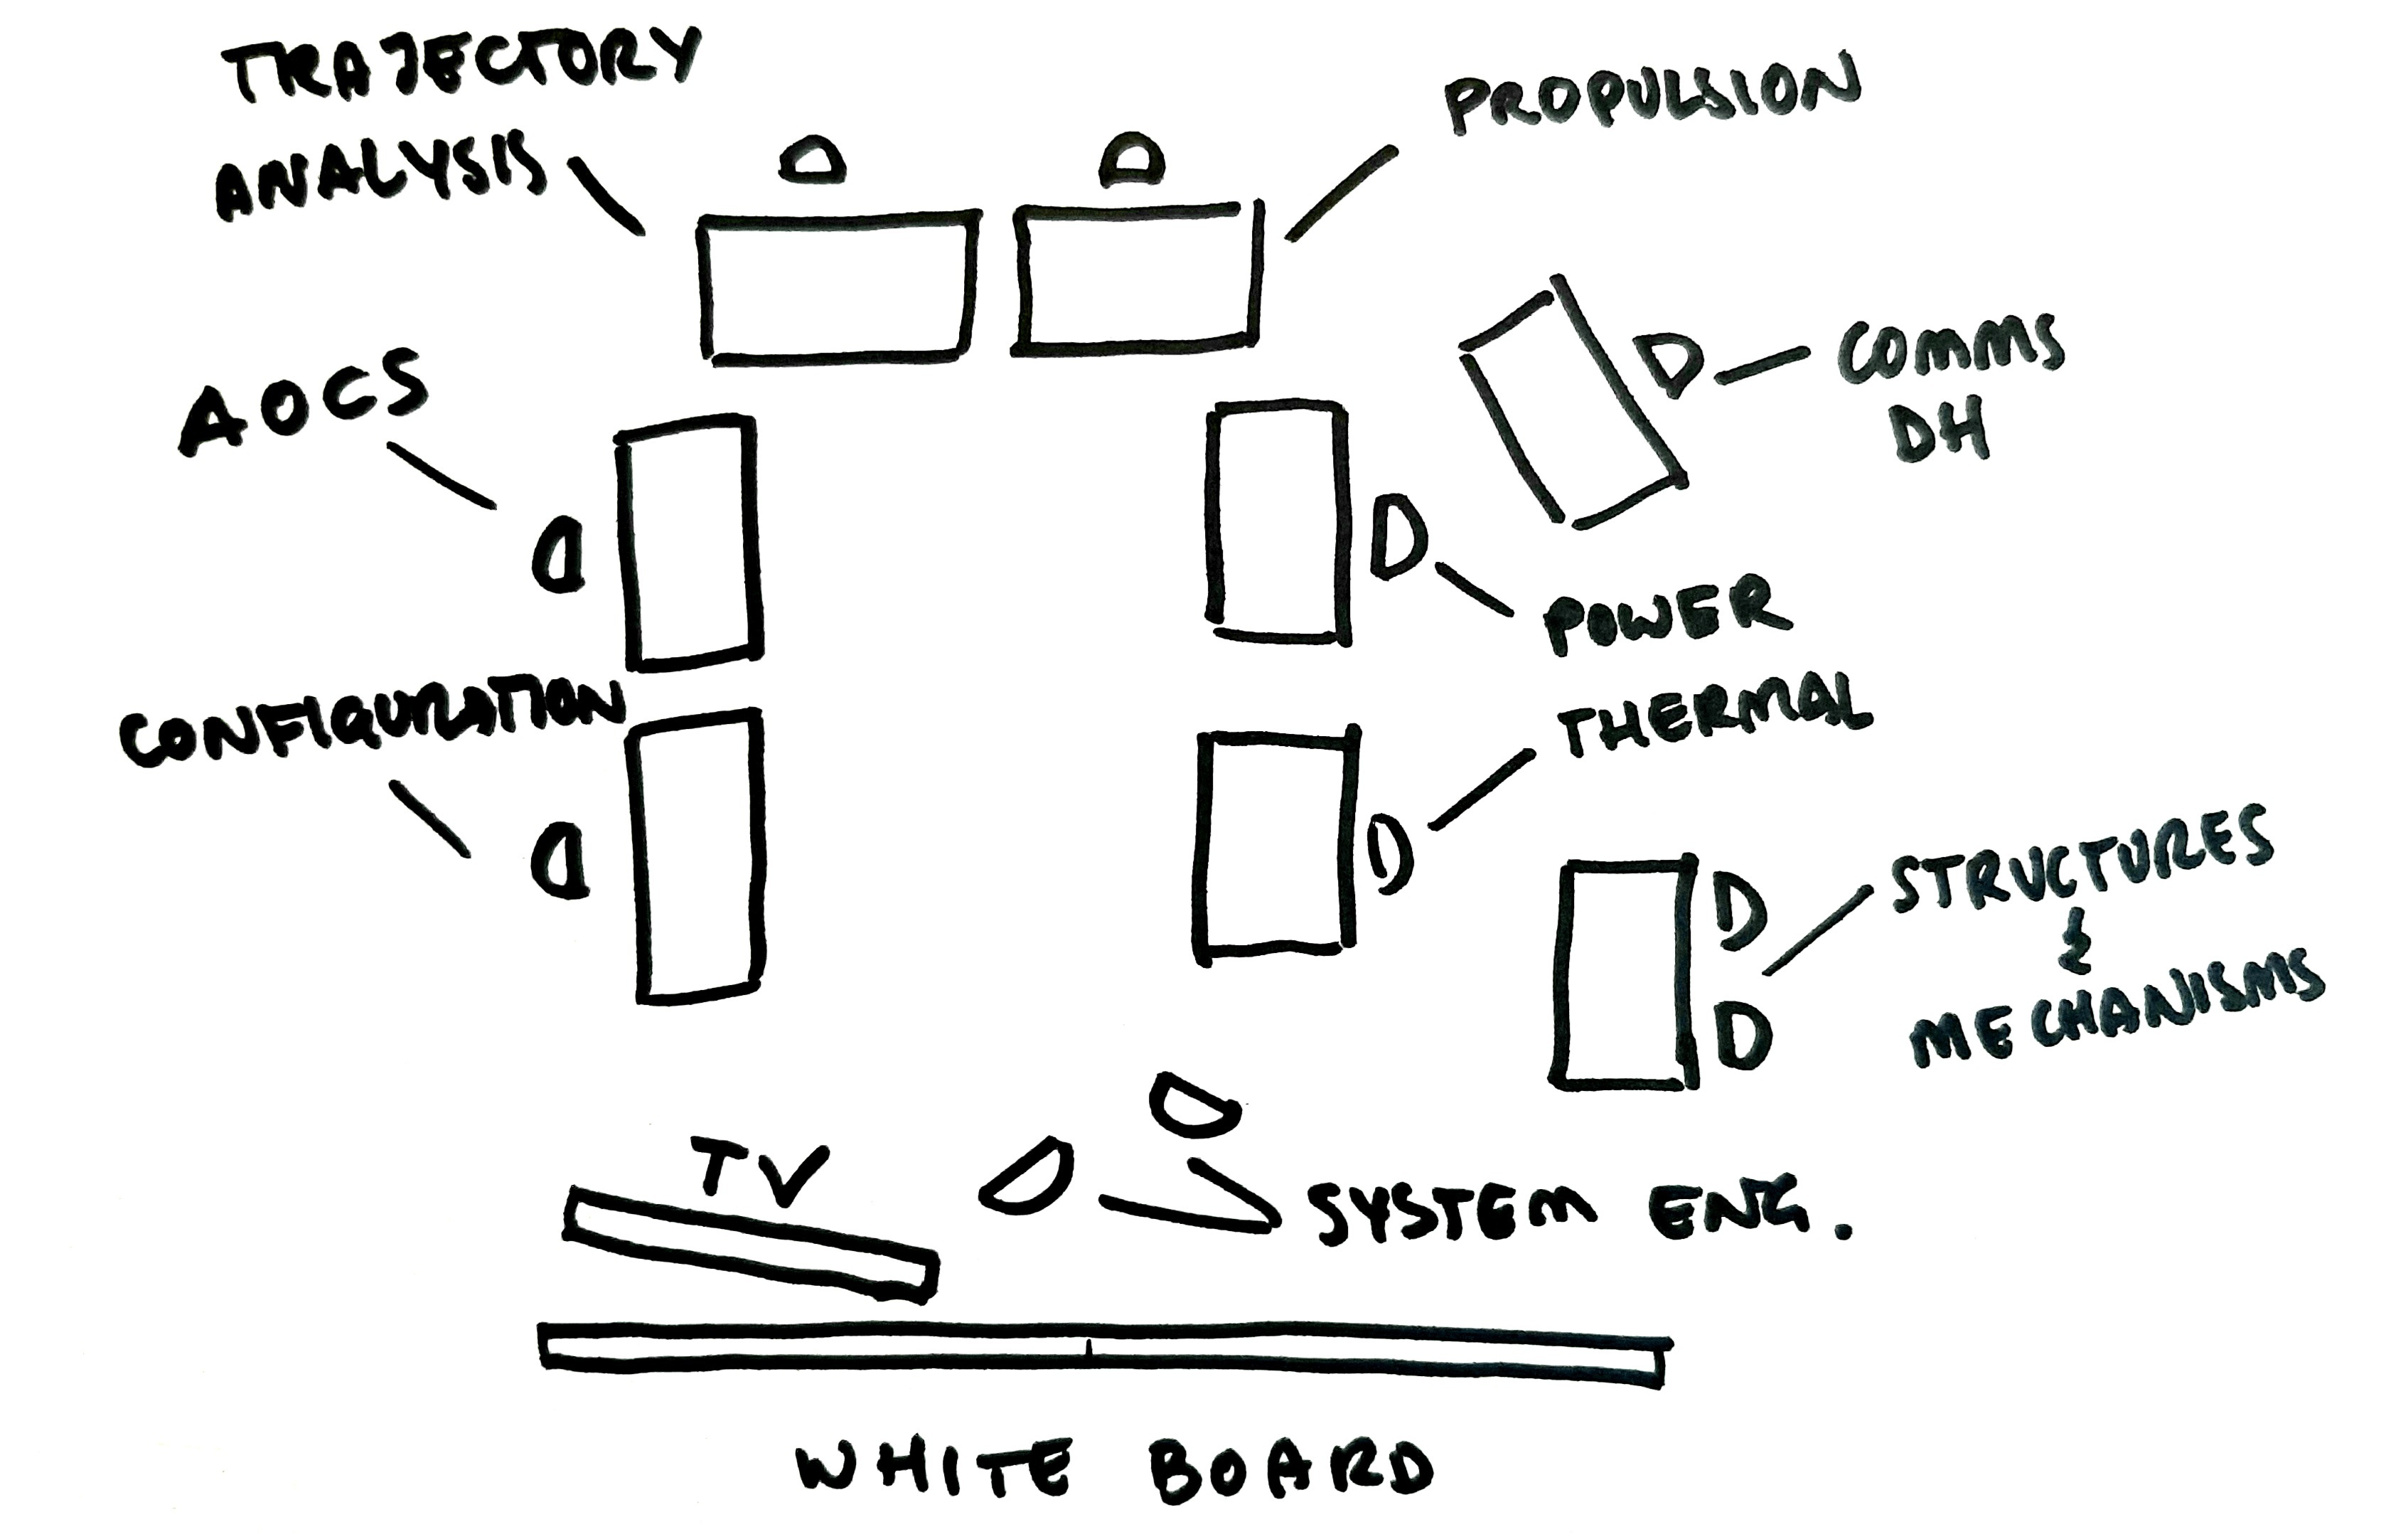 TRAJECTORY
ANALYSIS
PROPULSION
AOCS
COMMS
DH
POWER
CONFIGURATION
THERMAL
STRUCTURES
&
MECHANISMS
TV
SYSTEM ENG.
WHITE BOARD